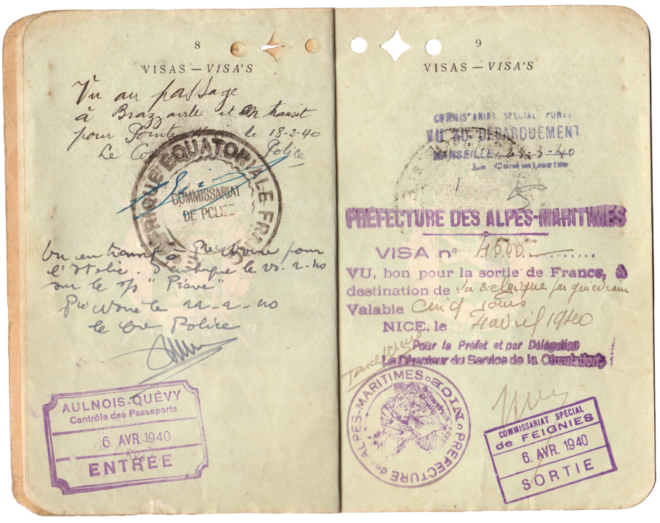 8
VISAS — VISA'S
Vu au passage
à Brazzaville et en transit
pour Pointe Noire le 18-2-40
Police
AFRIQUE EQUATORIALE FRAN
COMMISSARIAT
DE POLICE
Vu en transit à Pte Noire pour
l'Italie. le 22-2-40
sur le s/s "Piave"
Pte Noire le 22-2-40
le Police
AULNOIS-QUÉVY
Contrôle des Passeports
6 AVR. 1940
ENTRÉE
9
VISAS — VISA'S
COMMISSARIAT SPECIAL PORTS
VU AU DÉBARQUEMENT
MARSEILLE, -3-40
Le Commissaire
PREFECTURE DES ALPES-MARITIMES
VISA n°
VU, bon pour la sortie de France, à
destination de la Belgique par
Valable Cinq jours
NICE, le 4 avril 1940
Pour le Préfet et par Délégation
Le Directeur du Service de la
PREFECTURE des ALPES-MARITIMES
COMMISSARIAT SPÉCIAL
de FEIGNIES
6. AVR. 1940
SORTIE